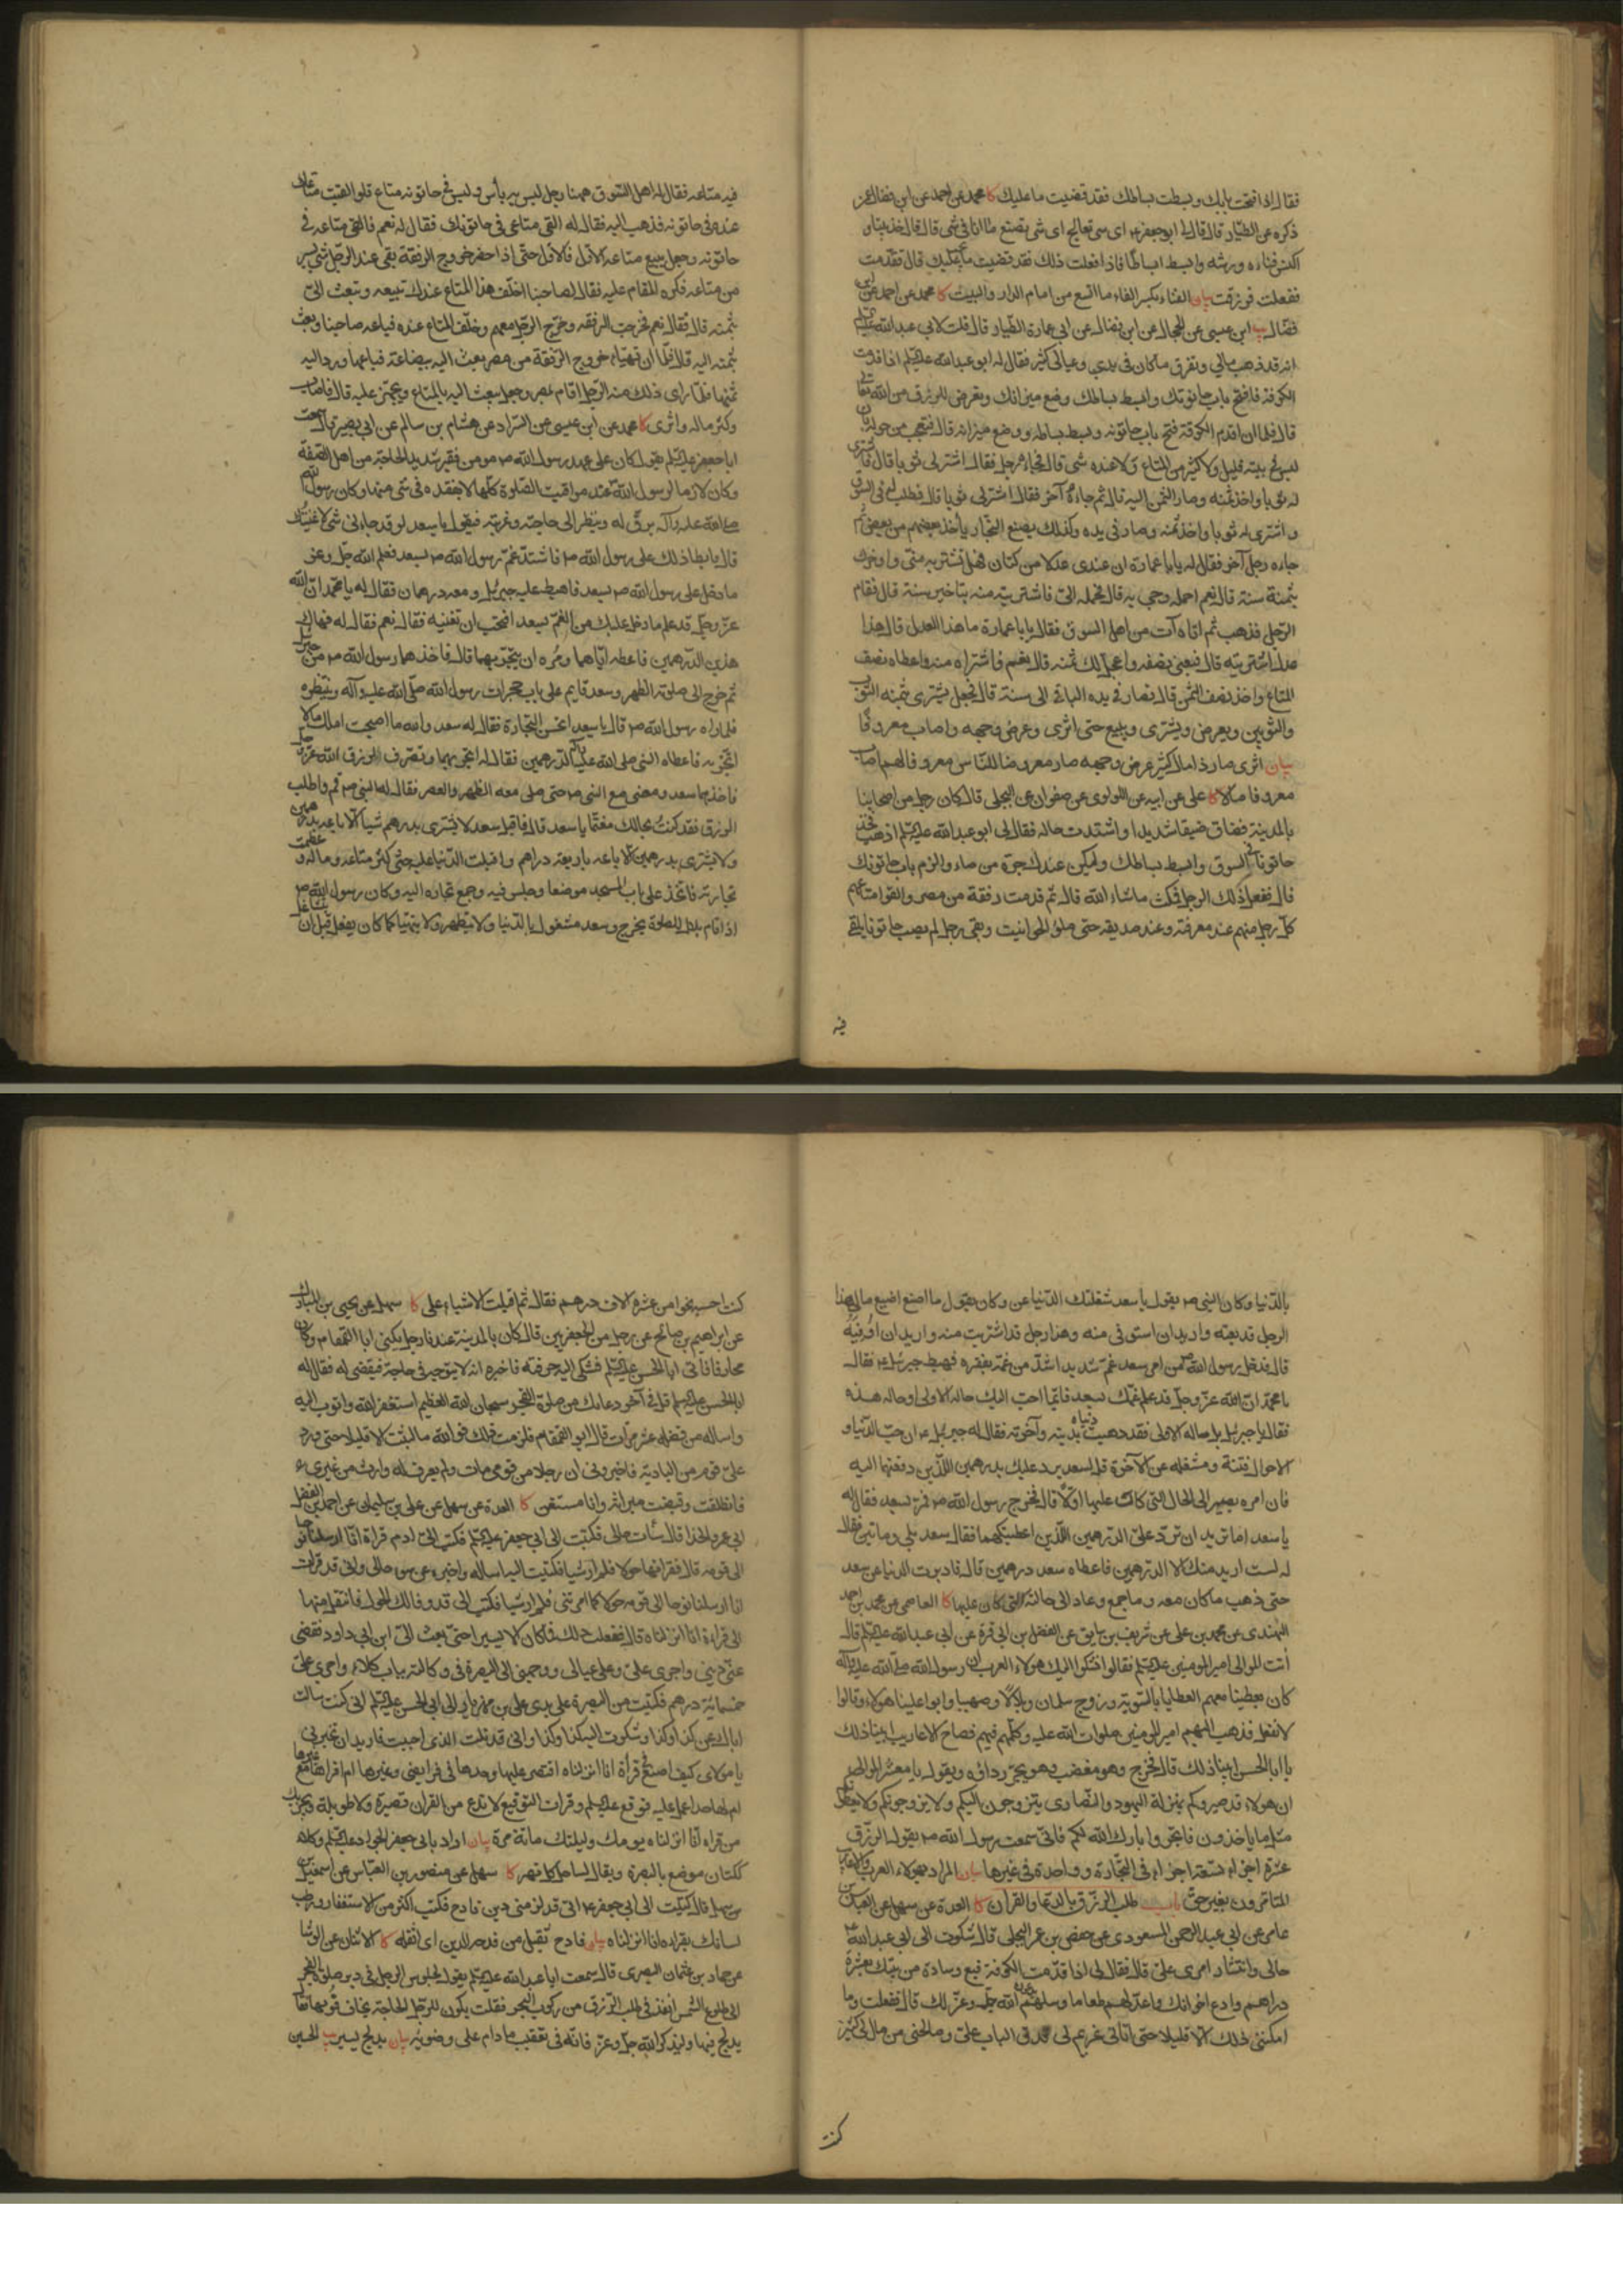 فقال اذا فتحت بابك وبسطت بساطك فقد قضيت ما عليك كا محمد عن احمد عن ابن فضال عمن
ذكره عن الطيار قال قال لى ابو جعفر ع اى شى تعالج اى شى تصنع قلت ما انا فى شى قال قال فخذ بيتا و
اكنس فناءه ورشه وابسط فيه بساطا فاذا فعلت ذلك فقد قضيت ما عليك قال فقدمت
ففعلت فرزقت بيان الفناء بكسر الفاء ما اتسع من امام الدار والبيت كا محمد عن احمد عن ابن
فضال يب ابن عيسى عن الحجال عن ابن فضال عن ابى عمارة الطيار قال قلت لابى عبد الله عليه السلم
انه قد ذهب مالى وتفرق ما كان فى يدى وعيالى كثير فقال له ابو عبد الله عليه السلم اذا قدمت
الكوفة فافتح باب حانوتك وابسط بساطك وضع ميزانك وتعرض للرزق من الله تعالى
قال فلما ان قدم الكوفة فتح باب حانوته وبسط بساطه ووضع ميزانه قال فتعجب من حوله بان
ليس فى بيته قليل ولا كثير من المتاع ولا عنده شى قال فجاءه رجل فقال اشتر لى ثوبا قال فاشترى
له ثوبا واخذ ثمنه وصار الثمن اليه قال ثم جاءه آخر فقال اشتر لى ثوبا قال فطلب له فى السوق
واشترى له ثوبا واخذ ثمنه وصار فى يده وكذلك يصنع التجار ياخذ بعضهم من بعض ثم
جاءه رجل آخر فقال له يا با عمارة ان عندى عدلا من كتان فهل تشتريه منى واوخرك
بثمنه سنة قال نعم احمله وجى به قال فحمله الى فاشتريته منه بتاخير سنة قال فقام
الرجل فذهب ثم اتاه آت من اهل السوق فقال يا با عمارة ما هذا العدل قال هذا
عدل اشتريته قال فبعنى نصفه واعجل لك ثمنه قال نعم فاشتراه منه واعطاه نصف
المتاع واخذ نصف الثمن قال فصار فى يده الباقى الى سنة قال فجعل يشترى بثمنه الثوب
والثوبين ويعرض ويشترى ويبيع حتى اثرى وعرض وجهه واصاب معروفا
بيان اثرى صار ذا مال كثير عرض وجهه صار معروضا للناس معروفا لهم اصاب
معروفا مالا كا على عن ابيه عن اللولوى عن صفوان عن البجلى قال كان رجل من اصحابنا
بالمدينة فضاق ضيقا شديدا واشتدت حاله فقال لى ابو عبد الله عليه السلم اذهب فخذ
حانوتا فى السوق وابسط بساطك وليكن عندك جرة من ماء والزم باب حانوتك
قال ففعل ذلك الرجل فمكث ما شاء الله قال ثم قدمت رفقة من مصر والقوا متاعهم
كل رجل منهم عند معرفته وعند صديقه حتى ملؤا الحوانيت وبقى رجل لم يصب حانوتا يلقى
فيه
فيه متاعه فقال له اهل السوق ههنا رجل ليس به بأس وليس فى حانوته متاع فلو القيت متاعك
عنده فى حانوته فذهب اليه فقال له القى متاعى فى حانوتك فقال له نعم فالقى متاعه فى
حانوته وجعل يبيع متاعه الاول فالاول حتى اذا حضر خروج الرفقة بقى عند الرجل شى يسير
من متاعه فكره المقام عليه فقال لصاحبنا اخلف هذا المتاع عندك تبيعه وتبعث الى
بثمنه قال فقال نعم فخرجت الرفقه وخرج الرجل معهم وخلف المتاع عنده فباعه صاحبنا وبعث
بثمنه اليه قال فلما ان تهياء خروج الرفقة من مصر بعث اليه ببضاعة فباعها ورد اليه
ثمنها فلما راى ذلك منه الرجل اقام بمصر وجعل يبعث اليه بالمتاع ويجهز عليه قال فاصاب
وكثر ماله واثرى كا محمد عن ابن عيسى عن السراد عن هشام بن سالم عن ابى بصير قال سمعت
ابا جعفر عليه السلم يقول كان على عهد رسول الله ص مومن فقير شديد الحاجة من اهل الصفة
وكان لازما لرسول الله ص عند مواقيت الصلوة كلها لا يفقده فى شى منها وكان رسول الله
صلى الله عليه وآله يرق له وينظر الى حاجته وغربته فيقول يا سعد لو قد جاءنى شى لاغنيتك
قال فابطا ذلك على رسول الله ص فاشتد غم رسول الله ص بسعد فعلم الله جل وعز
ما دخل على رسول الله ص بسعد فاهبط عليه جبرئيل ومعه درهمان فقال له يا محمد ان الله
عز وجل قد علم ما دخل عليك من الغم بسعد افتحب ان تغنيه فقال نعم فقال له فهاك
هذين الدرهمين فاعطه اياهما ومره ان يتجر بهما قال فاخذهما رسول الله ص من جبرئيل
ثم خرج الى صلوة الظهر وسعد قايم على باب حجرات رسول الله صلى الله عليه وآله ينتظره
فلما راه رسول الله ص قال يا سعد اتحسن التجارة فقال له سعد والله ما اصبحت املك مالا
اتجر به فاعطاه النبى صلى الله عليه وآله الدرهمين فقال له اتجر بهما وتصرف لرزق الله عز وجل
فاخذهما سعد ومضى مع النبى ص حتى صلى معه الظهر والعصر فقال له النبى ص قم فاطلب
الرزق فقد كنت بحالك مغتما يا سعد قال فاقبل سعد لا يشترى بدرهم شيا الا باعه بدرهمين
ولا يشترى بدرهمين الا باعه باربعة دراهم واقبلت الدنيا عليه حتى كثر متاعه وماله وعظمت
تجارته فاتخذ على باب المسجد موضعا وجلس فيه وجمع تجارته اليه وكان رسول الله ص
اذا قام بلال للصلوة يخرج وسعد مشغول بالدنيا ولا يتطهر ولا يتهيا كما كان يفعل قبل ان يتشاغل
بالدنيا وكان النبى ص يقول يا سعد شغلتك الدنيا عن وكان يقول ما اصنع اضيع مالى هذا
الرجل قد بعته واريد ان استوفى منه وهذا رجل قد اشتريت منه واريد ان اوفيه
قال فدخل رسول الله ص من امر سعد غم شديد اشد من غمه بفقره فهبط جبرئيل ع فقال
يا محمد ان الله عز وجل قد علم غمك بسعد فايما احب اليك حاله الاولى او حاله هذه
فقال يا جبرئيل بل حاله الاولى فقد ذهبت دنياه بدينه وآخرته فقال له جبرئيل ع ان حب الدنيا و
الاموال فتنة ومشغله عن الآخرة قل لسعد يرد عليك بدرهمين اللذين دفعتهما اليه
فان امره يصير الى الحال التى كانت عليها اولا قال فخرج رسول الله ص فمر بسعد فقال له
يا سعد اما تريد ان ترد على الدرهمين اللذين اعطيتكهما فقال سعد بلى ومائتين فقال
له لست اريد منك الا الدرهمين فاعطاه سعد درهمين قال فادبرت الدنيا عن سعد
حتى ذهب ما كان معه وما جمع وعاد الى حالته التى كان عليها كا العاصمى عن محمد بن احمد
النهدى عن محمد بن على عن شريف بن سابق عن الفضل بن ابى قرة عن ابى عبد الله عليه السلم قال
اتت الموالى امير المومنين عليه السلم فقالوا نشكوا اليك هولاء العرب ان رسول الله صلى الله عليه وآله
كان يعطينا معهم العطايا بالسوية وزوج سلمان وبلالا وصهيبا وابوا علينا هولاء وقالوا
لا نفعل فذهب اليهم امير المومنين صلوات الله عليه وكلمهم فيهم فصاح الاعاريب ابينا ذلك
يا ابا الحسن ابينا ذلك قال فخرج وهو مغضب وهو يجر رداؤه ويقول يا معشر الموالى
ان هولاء قد صيروكم بمنزلة اليهود والنصارى يتزوجون اليكم ولا يزوجونكم ولا يعطونكم
مثل ما ياخذون فاتجروا بارك الله لكم فانى سمعت رسول الله ص يقول الرزق
عشرة اجزاء تسعة اجزاء فى التجارة وواحدة فى غيرها بيان المراد بهولاء العرب
المتامرون بغير حق باب طلب الرزق بالدعاء والقران كا العدة عن سهل عن العباس بن
عامر عن ابى عبد الرحمن المسعودى عن حفص بن عمر البجلى قال شكوت الى ابى عبد الله ع
حالى وانتشار امرى على قال فقال لى اذا قدمت الكوفة فبع وسادة من بيتك بعشرة
دراهم وادع اخوانك واعد لهم طعاما وسلهم يدعون الله جل وعز لك قال ففعلت وما
امكننى ذلك الا قليلا حتى اتانى غريم لى فدق الباب على وصالحنى من مال لى كثير
كنت
كنت احسبه نحوا من عشرة الاف درهم فقال ثم اقبلت الاشياء على كا سهل عن يحيى بن المبارك
عن ابراهيم بن صالح عن رجل من الجعفريين قال كان بالمدينة عندنا رجل يكنى ابا القمقام وكان
محارفا فاتى ابا الحسن عليه السلم فشكى اليه حرفته فاخبره انه لا يتوجه فى حاجة فيقضى له فقال له
ابا الحسن عليه السلم قل فى آخر دعائك من صلوة الفجر سبحان الله العظيم استغفر الله واتوب اليه
واساله من فضله عشر مرات قال ابو القمقام فلزمت ذلك فو الله ما لبثت الا قليلا حتى ورد
على قوم من البادية فاخبرونى ان رجلا من قومى مات ولم يعرف له وارث من غيرى
فانطلقت وقبضت ميراثه وانا مستغن كا العدة عن سهل عن على بن سليمان عن احمد بن الفضل
ابى عمرو الحذا قال سأت حالى فكتبت الى ابى جعفر عليه السلم فكتب الى ادم قراءة انا ارسلنا نوحا
الى قومه قال فقراتها حولا فلم ار شيا فكتبت اليه اساله واخبره عن سوء حالى وانى قد قرات
انا ارسلنا نوحا الى قومه حولا كما امرتنى فلم ار شيا فكتب الى قد وفا لك الحول فانتقل منها
الى قراءة انا انزلناه قال ففعلت ذلك فما كان الا يسيرا حتى بعث الى ابن ابى داود فقضى
عنى دينى واجرى على وعلى عيالى ووجهنى الى البصرة فى وكالته بباب كلاء واجرى على
خمسمائة درهم فكتبت من البصرة على يدى على بن مهزيار الى ابى الحسن عليه السلم انى كنت سالت
اباك عن كذا وكذا وشكوت اليه كذا وكذا وانى قد نلت الذى احببت فاريد ان تخبرنى
يا مولاى كيف اصنع فى قرأة انا انزلناه اقتصر عليها وحدها فى فرايضى وغيرها ام اقرا معها غيرها
ام لها حد اعمل عليه فوقع عليه السلم وقرات التوقيع لا تدع من القران قصيرة ولا طويلة ويجزيك
من قراءة انا انزلناه يومك وليلتك مائة مرة بيان اراد بابى جعفر الجواد عليه السلم وكلاء
ككتان موضع بالبصرة ويقال لساحل كل نهر كا سهل عن منصور بن العباس عن اسمعيل
بن سهل قال كتبت الى ابى جعفر ع انى قد لزمنى دين فادح فكتب اكثر من الاستغفار ورطب
لسانك بقراءة انا انزلناه بيان فادح ثقيل من فدحه الدين اى اثقله كا الاثنان عن الوشا
عن حماد بن عثمان البصرى قال سمعت ابا عبد الله عليه السلم يقول لجلوس الرجل فى دبر صلوة الفجر
الى طلوع الشمس انفذ فى طلب الرزق من ركوب البحر فقلت يكون للرجل الحاجة يخاف فوتها فقال
يدلج فيها وليذكر الله جل وعز فانه فى تعقيب ما دام على وضوئه بيان يدلج يسير يب الحسين